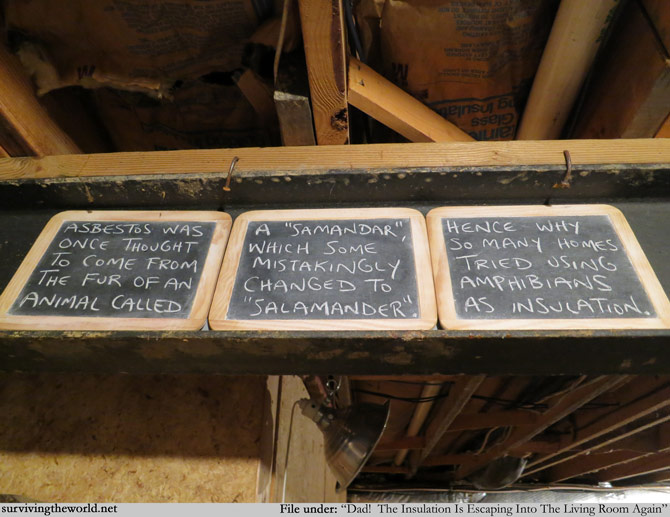 ASBESTOS WAS
ONCE THOUGHT
TO COME FROM
THE FUR OF AN
ANIMAL CALLED
A "SAMANDAR",
WHICH SOME
MISTAKINGLY
CHANGED TO
"SALAMANDER".
HENCE WHY
SO MANY HOMES
TRIED USING
AMPHIBIANS
AS INSULATION.
survivingtheworld.net
File under: “Dad! The Insulation Is Escaping Into The Living Room Again”